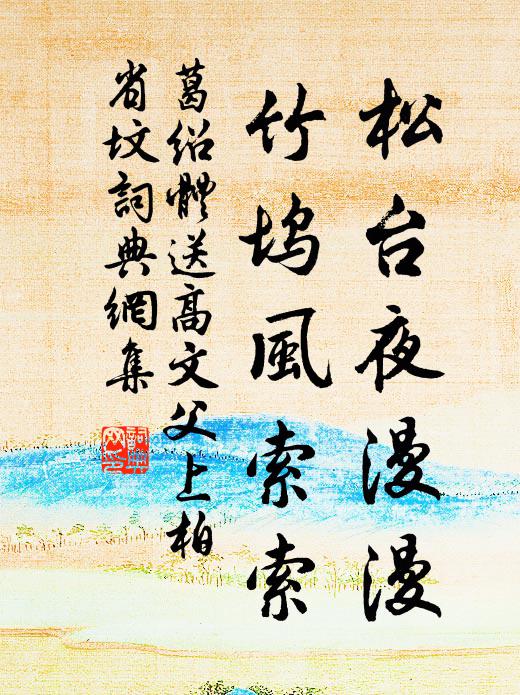 松台夜漫漫
竹坞風索索
葛绍體送高文父上柏
省坟詞典網集